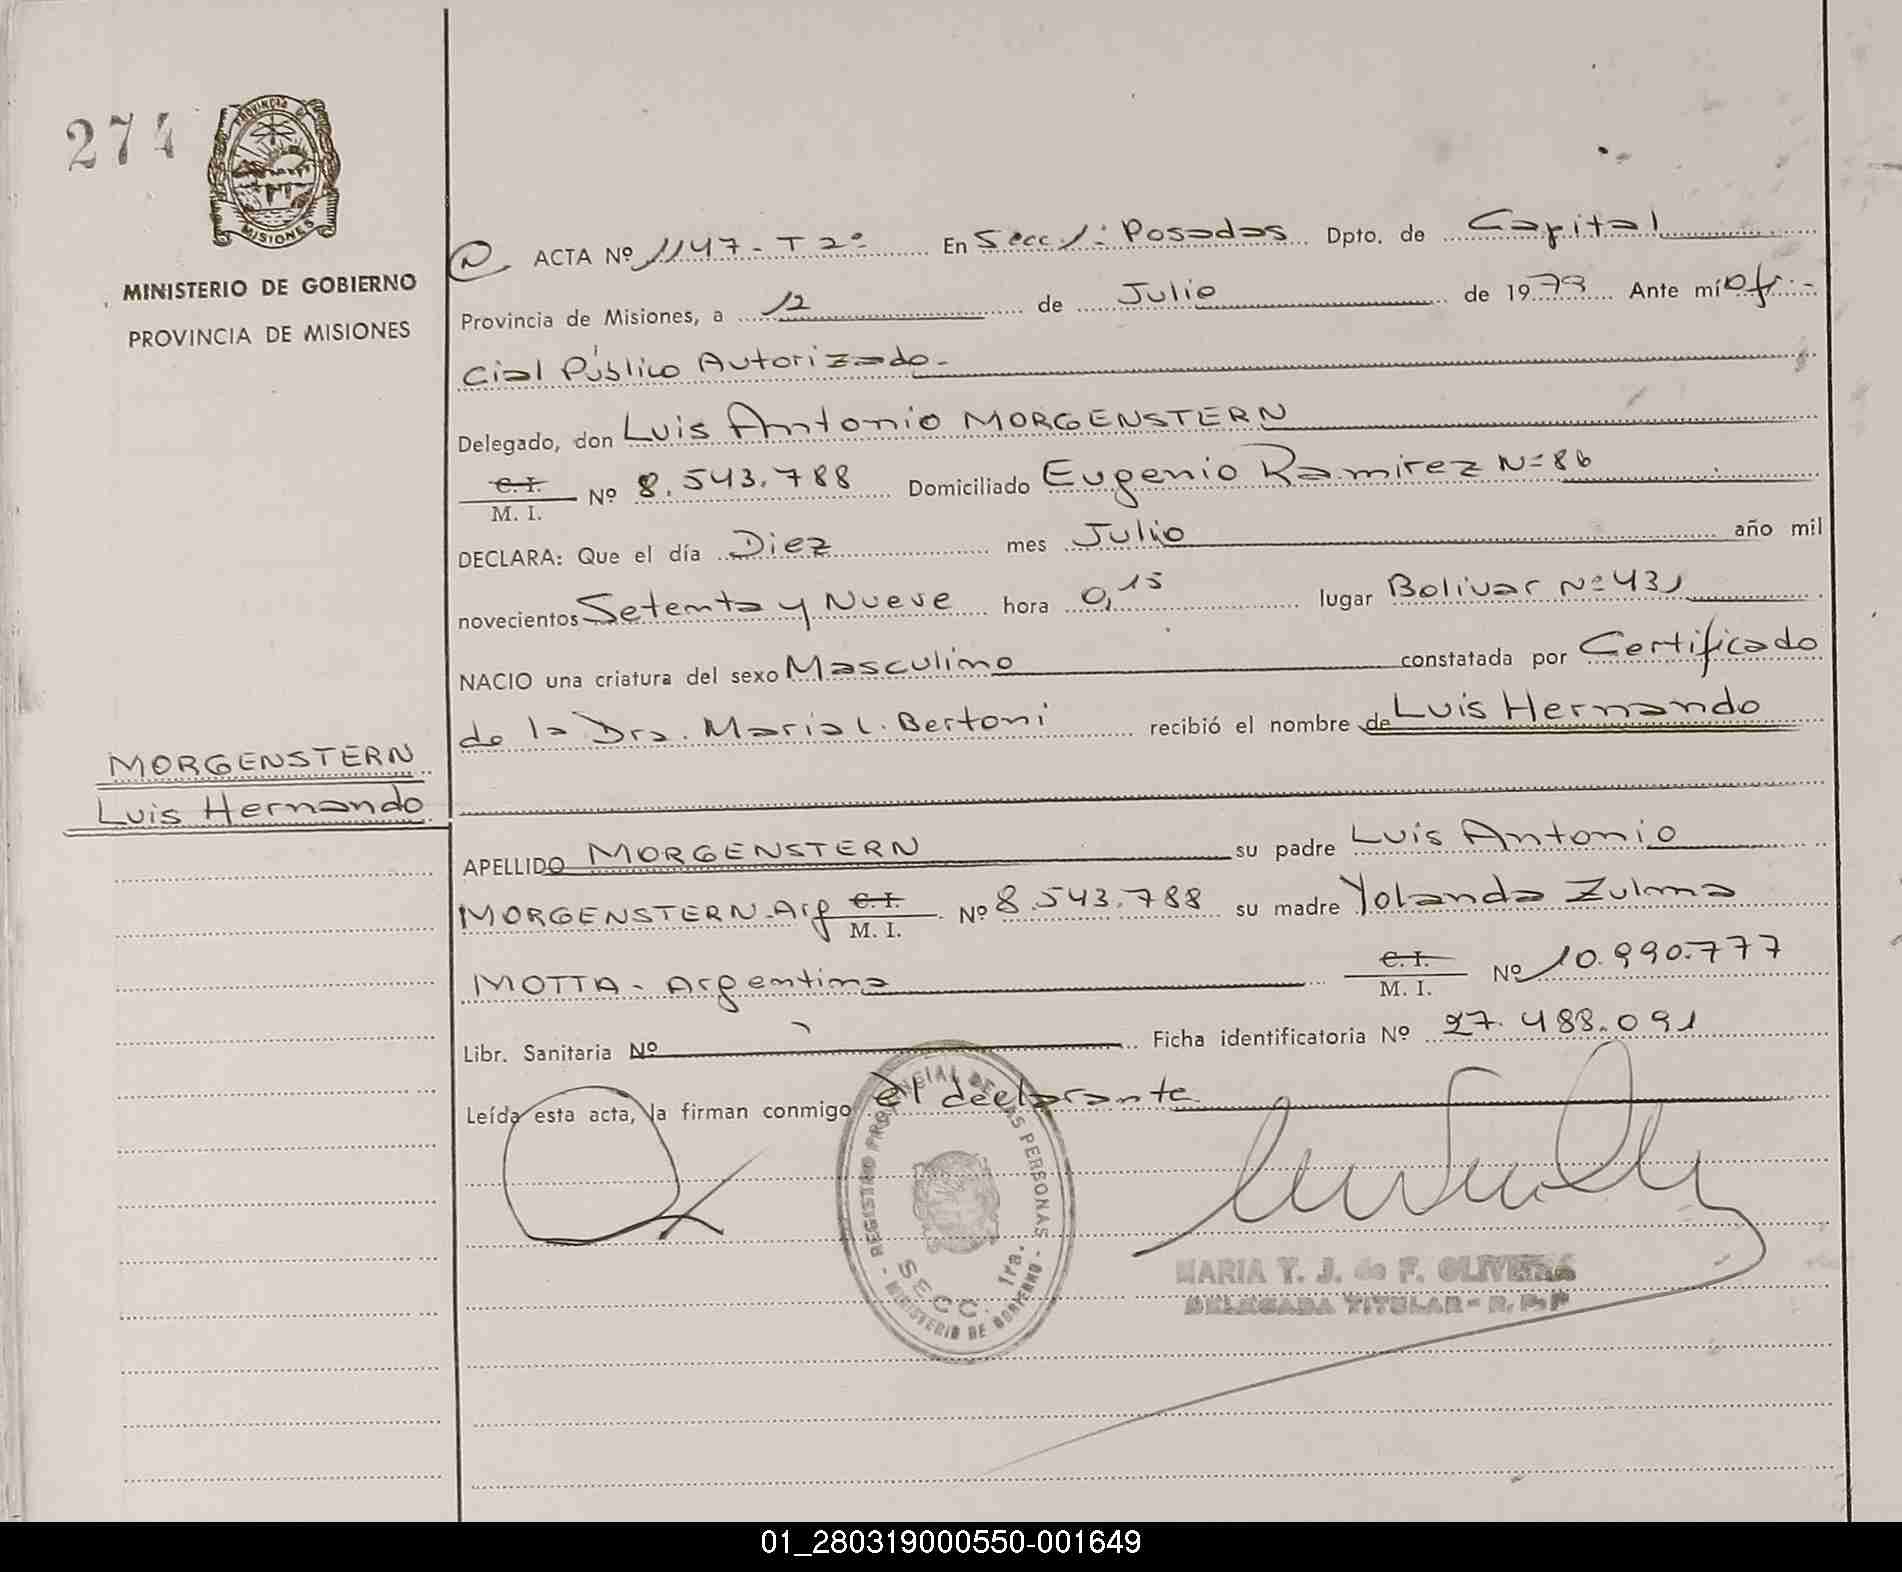 274
PROVINCIA D
MISIONES
MINISTERIO DE GOBIERNO
PROVINCIA DE MISIONES
N ACTA Nº 1147 - T 2º En Secc 1ª Posadas Dpto. de Capital
Provincia de Misiones, a 12 de Julio de 1979 Ante mí Ofi-
cial Público Autorizado.-
Delegado, don Luis Antonio MORGENSTERN
C. I.
M. I. Nº 8.543.788 Domiciliado Eugenio Ramirez Nº 86
DECLARA: Que el día Diez mes Julio año mil
novecientos Setenta y Nueve hora 0,15 lugar Bolivar Nº 431
NACIO una criatura del sexo Masculino constatada por Certificado
de la Dra. Maria L. Bertoni recibió el nombre de Luis Hernando
MORGENSTERN
Luis Hernando
APELLIDO MORGENSTERN su padre Luis Antonio
MORGENSTERN-Arg C. I. M. I. Nº 8.543.788 su madre Yolanda Zulma
MOTTA - Argentina C. I. M. I. Nº 10.990.777
Libr. Sanitaria Nº Ficha identificatoria Nº 27.488.091
Leída esta acta, la firman conmigo el declarante
- REGISTRO PROVINCIAL DE LAS PERSONAS -
SECC. 1ra.
MINISTERIO DE GOBIERNO
MARIA Y. J. de F. OLIVEIRA
DELEGADA TITULAR - R. P. P
01_280319000550-001649